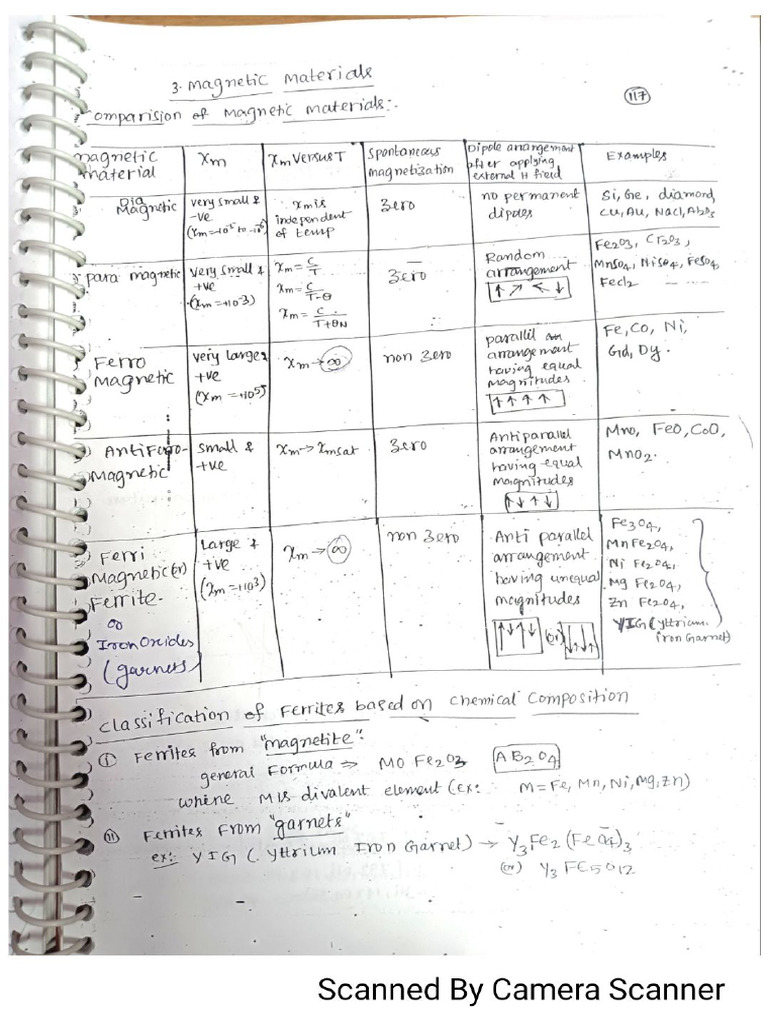 3. Magnetic Materials
117
Comparision of Magnetic Materials:-
Magnetic material | χm | χm Versus T | Spontaneous magnetization | Dipole arrangement after applying external H field | Examples
Dia Magnetic | very small & -ve | χm is independent of temp | Zero | no permanent dipoles | Si, Ge, diamond, Cu, Au, NaCl, Al2O3
para magnetic | very small & +ve (χm = +10-3) | χm = C/T χm = C/T-θ χm = C/T+θN | Zero | Random arrangement ↑ ↗ ↖ ↓ | Fe2O3, Cr2O3, MnSO4, NiSO4, FeSO4, FeCl2
Ferro Magnetic | very large & +ve (χm = +10^5) | χm → ∞ | non zero | parallel arrangement having equal magnitudes ↑ ↑ ↑ ↑ | Fe, Co, Ni, Gd, Dy.
AntiFerro-Magnetic | small & +ve | χm → χmsat | Zero | Antiparallel arrangement having equal magnitudes ↑ ↓ ↑ ↓ | MnO, FeO, CoO, MnO2.
Ferri Magnetic (or) Ferrite- or Iron Oxides (garnets) | Large & +ve (χm = +10^3) | χm → ∞ | non zero | Anti parallel arrangement having unequal magnitudes ↑↓↑↓ (or) ↓↑↓↑ | Fe3O4, MnFe2O4, Ni Fe2O4, Mg Fe2O4, Zn Fe2O4, YIG (yttrium iron Garnet)
Classification of Ferrites based on Chemical Composition
(i) Ferrites from "magnetite":
general Formula ⇒ MO Fe2O3 AB2O4
where M is divalent element (ex: M = Fe, Mn, Ni, Mg, Zn)
(ii) Ferrites From "garnets"
ex:- YIG (Yttrium Iron Garnet) → Y3Fe2(FeO4)3
(or) Y3 Fe5O12
Scanned By Camera Scanner